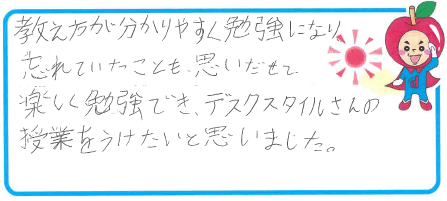 教え方が分かりやすく勉強になり、
忘れていたことも、思いだせて
楽しく勉強でき、デスクスタイルさんの
授業をうけたいと思いました。